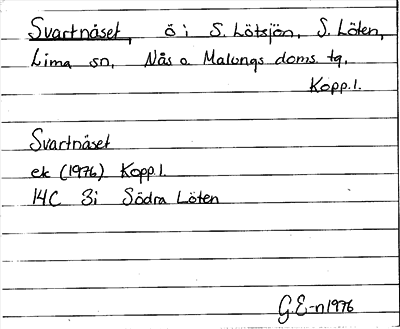 Svartnäset, ö i S. Lötsjön, S. Löten,
Lima sn, Nås o. Malungs doms. tg,
Kopp.l.
Svartnäset
ek (1976) Kopp.l.
14C 3i Södra Löten
G.E-n 1976